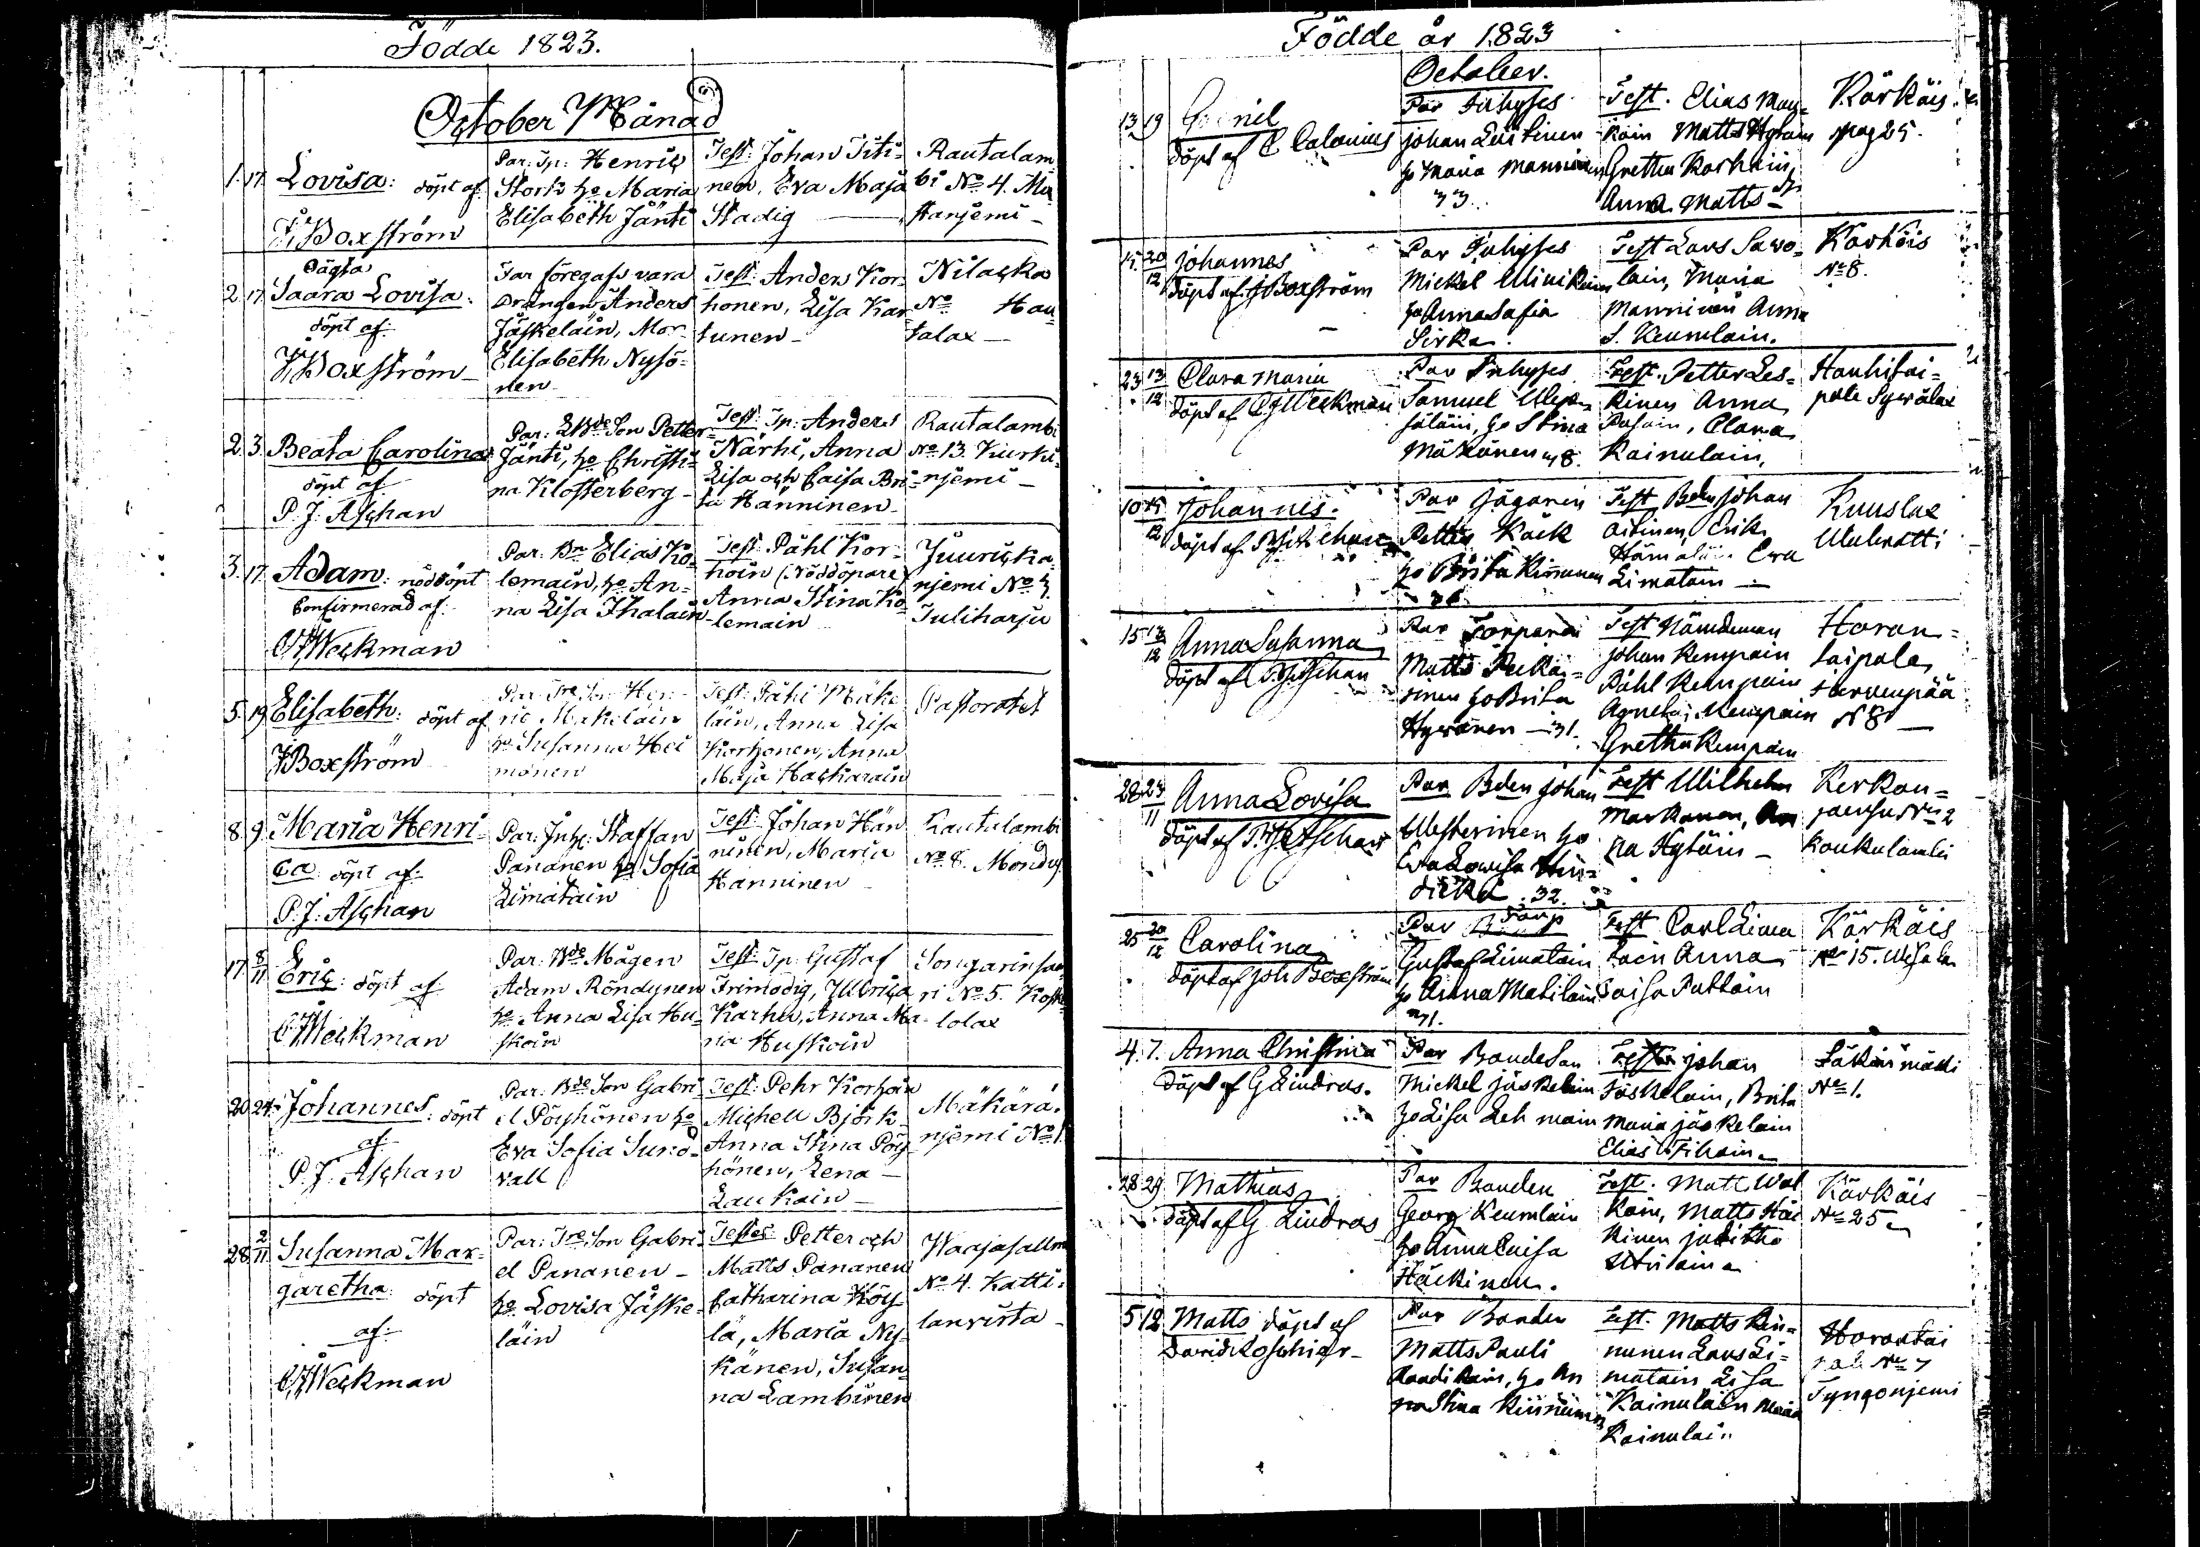 Födde 1823.
October Månad
1. 17. Lovisa: döpt af
J. Boxström
Par: Tp: Henric
Stork ho Maria
Elisabeth Jänti
Test: Johan Titi-
nen, Eva Maja
Stadig
Rautalam
bi No 4. Mu
stanjemi
2 17. Oägta
Saara Lovisa.
döpt af
J. Boxström
Far föregafs vara
Drängen Anders
Jäskeläin, Mor
Elisabeth Nysö-
nen
Test: Anders Kor-
honen, Lisa Kar
tunen
Nilacka
No Hau
talax
2. 3. Beata Carolina
döpt af
P. J. Aschan
Par: Bde Son Petter
Jänti, ho Christi-
na Klosterberg
Test: Tp: Anders
Närhi, Anna
Lisa och Caisa Bri-
ta Hänninen
Rautalambi
No 13. Kurki-
njemi
3. 17. Adam: nöddöpt
Confirmerad af
C. J. Weckman
Par: Bn Elias Ko-
lemain, ho An-
na Lisa Ihalain
Test: Påhl Kor-
hoin (Nöddöpare)
Anna Stina Ko-
lemain
Juuricka
njemi No 4.
Tuliharju
5. 19. Elisabeth: döpt af
J. Boxström
Par: Tre Son Hen-
ric Makelain
ho Susanna Hei
monen
Test: Påhl Mäke
läin, Anna Lisa
Korhonen, Anna
Maja Hackarain
Pastoratet
8. 9. Maria Henri-
ca döpt af
P. J. Aschan
Par: Inh: Staffan
Pananen ho Sofia
Limatain
Test: Johan Hän
ninen, Maria
Hänninen
Rautalambi
No 8.
17. 8/11 Eric: döpt af
C. J. Weckman
Par: Bde Mågen
Adam Röndynen
ho Anna Lisa Hu-
skoin
Test: Tp: Gustaf
Frimodig, Ulrica
Karhu, Anna Ma-
ria Huskoin
Songarinsaa-
ri No 5. Koske
lolax
20 24. Johannes: döpt
af
P. J. Aschan
Par: Bde Son Gabri
el Pöyhönen ho
Eva Sofia Sund-
vall
Test: Pehr Korhoin
Michell Björk
Anna Stina Pöy
hönen, Lena
Laukain
Mäkärä-
njemi No 1.
28 2/11 Susanna Mar-
garetha: döpt
af
C. J. Weckman
Par: Tre Son Gabri-
el Pananen
ho Lovisa Jäske-
läin
Testes: Petter och
Matts Pananen
Catharina Köy
lä, Maria Ny-
känen, Susan-
na Lambinen
Waajasalmi
No 4. Katti-
lanvirta
Födde år 1823
October.
13 19
döpt af C Calonius
Par Inhyses
johan Leutinen
ho Maria Manninen
33.
Test. Elias May-
Matts Hytöin
Gretha Korhoin,
Anna Matts
Kärkäis
pag 25.
15. 20/12 Johannes
döpt af J Boxström
Par Inhyses
Mickel Minikain
ho Anna Safia
Sirka.
Test Lars Sawo-
lain, Maria
Manninen Anna
S. Keurulain.
Kärkäis
No 8.
23 13/12 Clara Maria
döpt af C J Weckman
Par Inhyses
Samuel
ho Stina
Mäkönen 48.
Test. Petter Les-
kinen Anna
Pasain, Clara
Kainulain,
Hauhitai-
pale Syvälax
10 15/12 Johannes.
döpt af P J Aschan
Par Jägaren
Petter Kack
ho Brita Kinnunen
36
Test Bden Johan
Oitinen, Erik
Eva
Limatain
Kuuslax
15 13/12 Anna Susanna
döpt af P J Aschan
Par Torparen
Matts Pulkki-
nen ho Brita
Hyvönen 31.
Test Nämdeman
Johan Kempain
Påhl Kempain
Agneta Kempain
Gretha Kempain
Horon-
taipale,
Hervenpää
N 8
28 23/11 Anna Lovisa
döpt af P J Aschan
Par Bden johan
Westerinen ho
Eva Lowisa Hin-
dikka 32.
Test Wilhelm
Markanen, An
na Hytöin
Kerkon-
joensu No 2
Koukulambi
25 20/12 Carolina
döpt af Joh Boxström
Par Torp
Gustaf Limatain
ho Anna Matilain
41.
Test Carl Lima
tain Anna
Caisa Puttoin
Kärkäis
No 15.
4. 7. Anna Christina
döpt af G Lindros.
Par BondeSon
Mickel jäskelain
ho Lisa Lehmain
Test johan
jäskelain, Brita
Maria jäskelain
Elias Tihain
No 1.
28 29 Mathias
döpt af G Lindros
Par Bonden
Georg Keurulain
ho Anna Caisa
Häckinen.
Test. Matts Wal
kain, Matts Häc
kinen juditha
Utriain
Kärkäis
No 25
5 12 Matts döpt af
David Roschier
Par Bonden
Matts Pauli
Raadikain, ho An
na Stina Kinnunen
Test. Matts Kin-
nunen Lars Li-
matain Lisa
Kainulain Maria
Kainulain
Horontai
pale No 7
Tyngonjemi